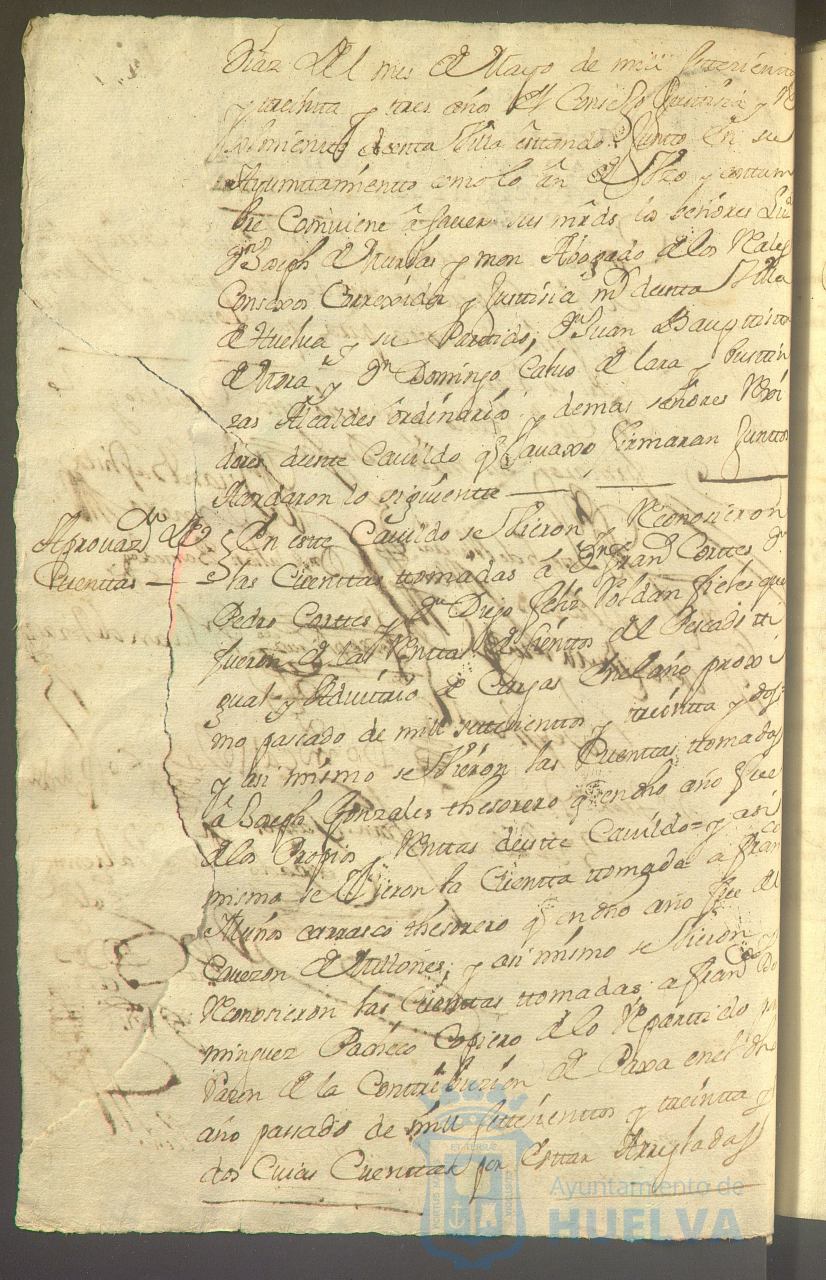 Diaz del mes de Mayo de mill setecientos
y treinta y tres años el Consejo Justisia y Re
simiento desta Villa estando Junto en su
Ayunttamientto como lo an de Uso y costtum
bre Combiene a saver sus mrds los señores Lizdo
Dn Joseph de y mon Abogado de los Rales
Consexos Correxidor y Justisia mr destta Villa
de Huelva y su Partido, Dn Juan Bauptista
de Mora y Dn Domingo Calvo de lara y bustin
zas Alcaldes ordinarios y demas señores Rexi
dores deste Cavildo q avaxo firmaran Junttos
Acordaron lo siguientte
Aprovazn de
Cuenttas
En este Cavildo se Vieron y Reconosieron
las Cuenttas ttomadas á Dn Frando Corttes Dn
Pedro Corttes y Dn Diego feliz Roldan fieles que
fueron de las Renttas de sienttos del Pescado
y Advittrio de Cargas en el año proxi
mo passado de mill settecienttos y treintta y dos
y asi mismo se Vieron las Cuenttas ttomadas
a Joseph Gonzales thesorero q en dho año fue
de los Propios y Renttas deste Cavildo = y asi
mismo se Vieron la Cuentta ttomada a Franco
Muños carrasco thesorero q en dho año fue del
de Millones, y asi mismo se Vieron y
Reconosieron las Cuenttas ttomadas a Franco Do
minguez Pacheco de lo Reparttido por
razon de la Conttribuzion de Paxa en el dho
año passado de mill settecienttos y treintta y
dos Cuias Cuenttas por Esttar Arregladas
Ayuntamiento de
HUELVA